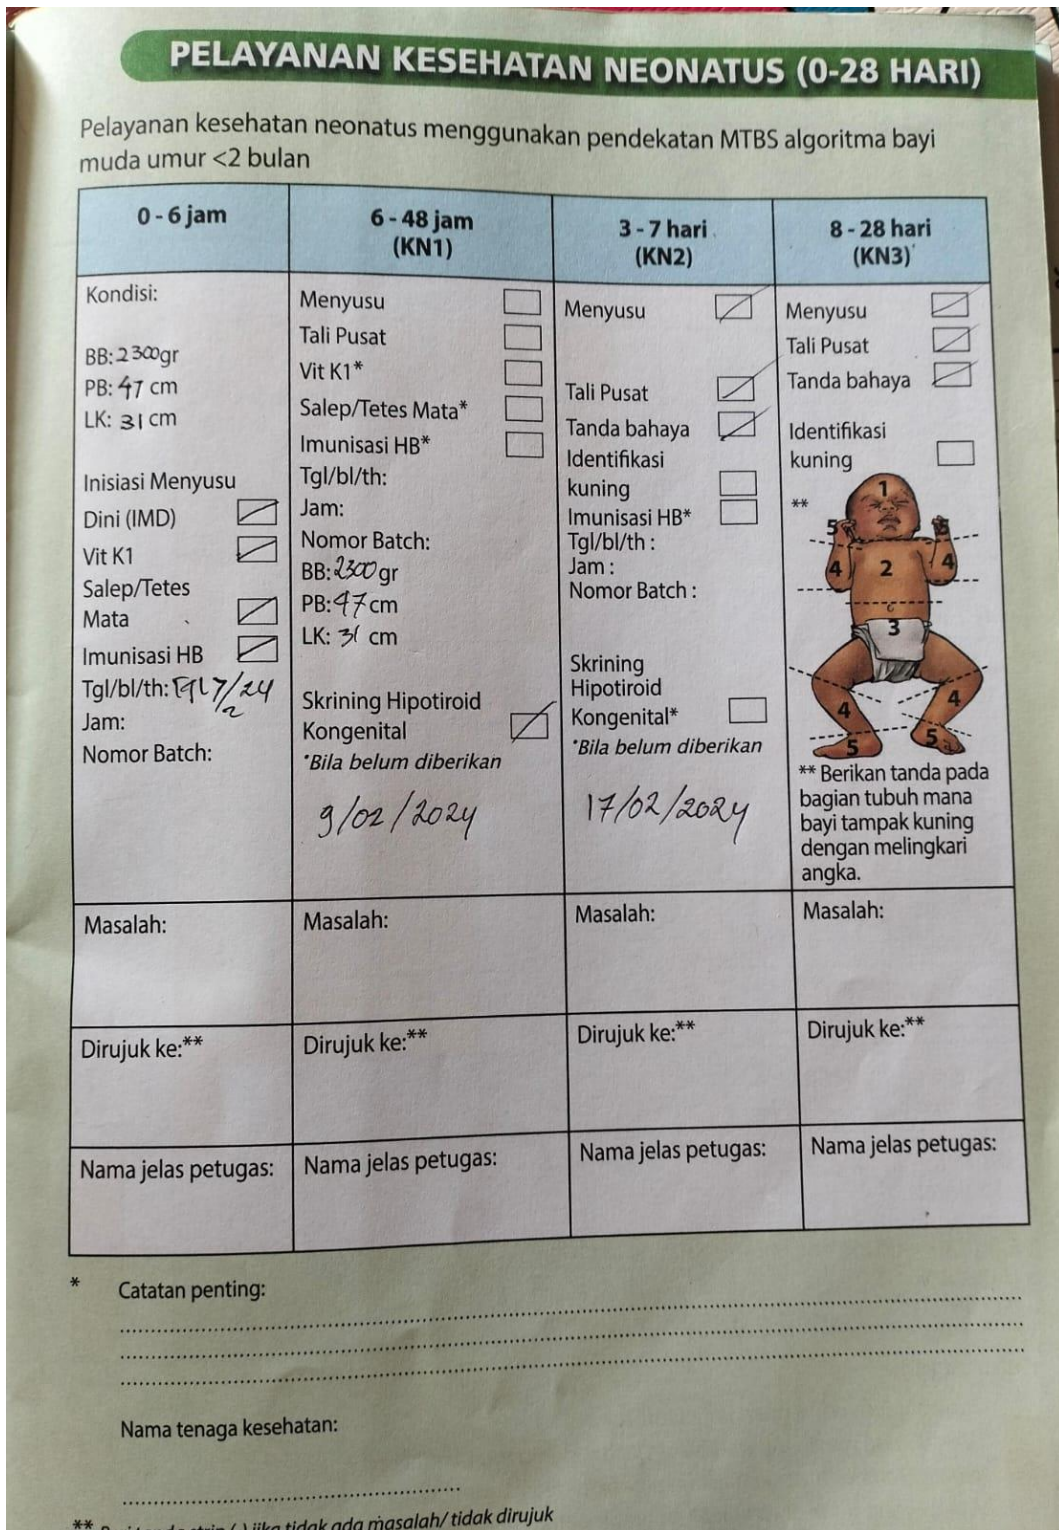 PELAYANAN KESEHATAN NEONATUS (0-28 HARI)
Pelayanan kesehatan neonatus menggunakan pendekatan MTBS algoritma bayi
muda umur <2 bulan
0 - 6 jam
Kondisi:
BB: 2300 gr
PB: 47 cm
LK: 31 cm
Inisiasi Menyusu
Dini (IMD)
Vit K1
Salep/Tetes
Mata
Imunisasi HB
Tgl/bl/th: Tgl 7/2/24
Jam:
Nomor Batch:
6 - 48 jam
(KN1)
Menyusu
Tali Pusat
Vit K1*
Salep/Tetes Mata*
Imunisasi HB*
Tgl/bl/th:
Jam:
Nomor Batch:
BB: 2300 gr
PB: 47 cm
LK: 31 cm
Skrining Hipotiroid
Kongenital
*Bila belum diberikan
9/02/2024
3 - 7 hari
(KN2)
Menyusu
Tali Pusat
Tanda bahaya
Identifikasi
kuning
Imunisasi HB*
Tgl/bl/th :
Jam :
Nomor Batch :
Skrining
Hipotiroid
Kongenital*
*Bila belum diberikan
17/02/2024
8 - 28 hari
(KN3)
Menyusu
Tali Pusat
Tanda bahaya
Identifikasi
kuning
**
1
5 5
4 2 4
3
4 4
5 5
** Berikan tanda pada
bagian tubuh mana
bayi tampak kuning
dengan melingkari
angka.
Masalah: Masalah: Masalah: Masalah:
Dirujuk ke:** Dirujuk ke:** Dirujuk ke:** Dirujuk ke:**
Nama jelas petugas: Nama jelas petugas: Nama jelas petugas: Nama jelas petugas:
* Catatan penting:
Nama tenaga kesehatan:
** jika tidak ada masalah/ tidak dirujuk